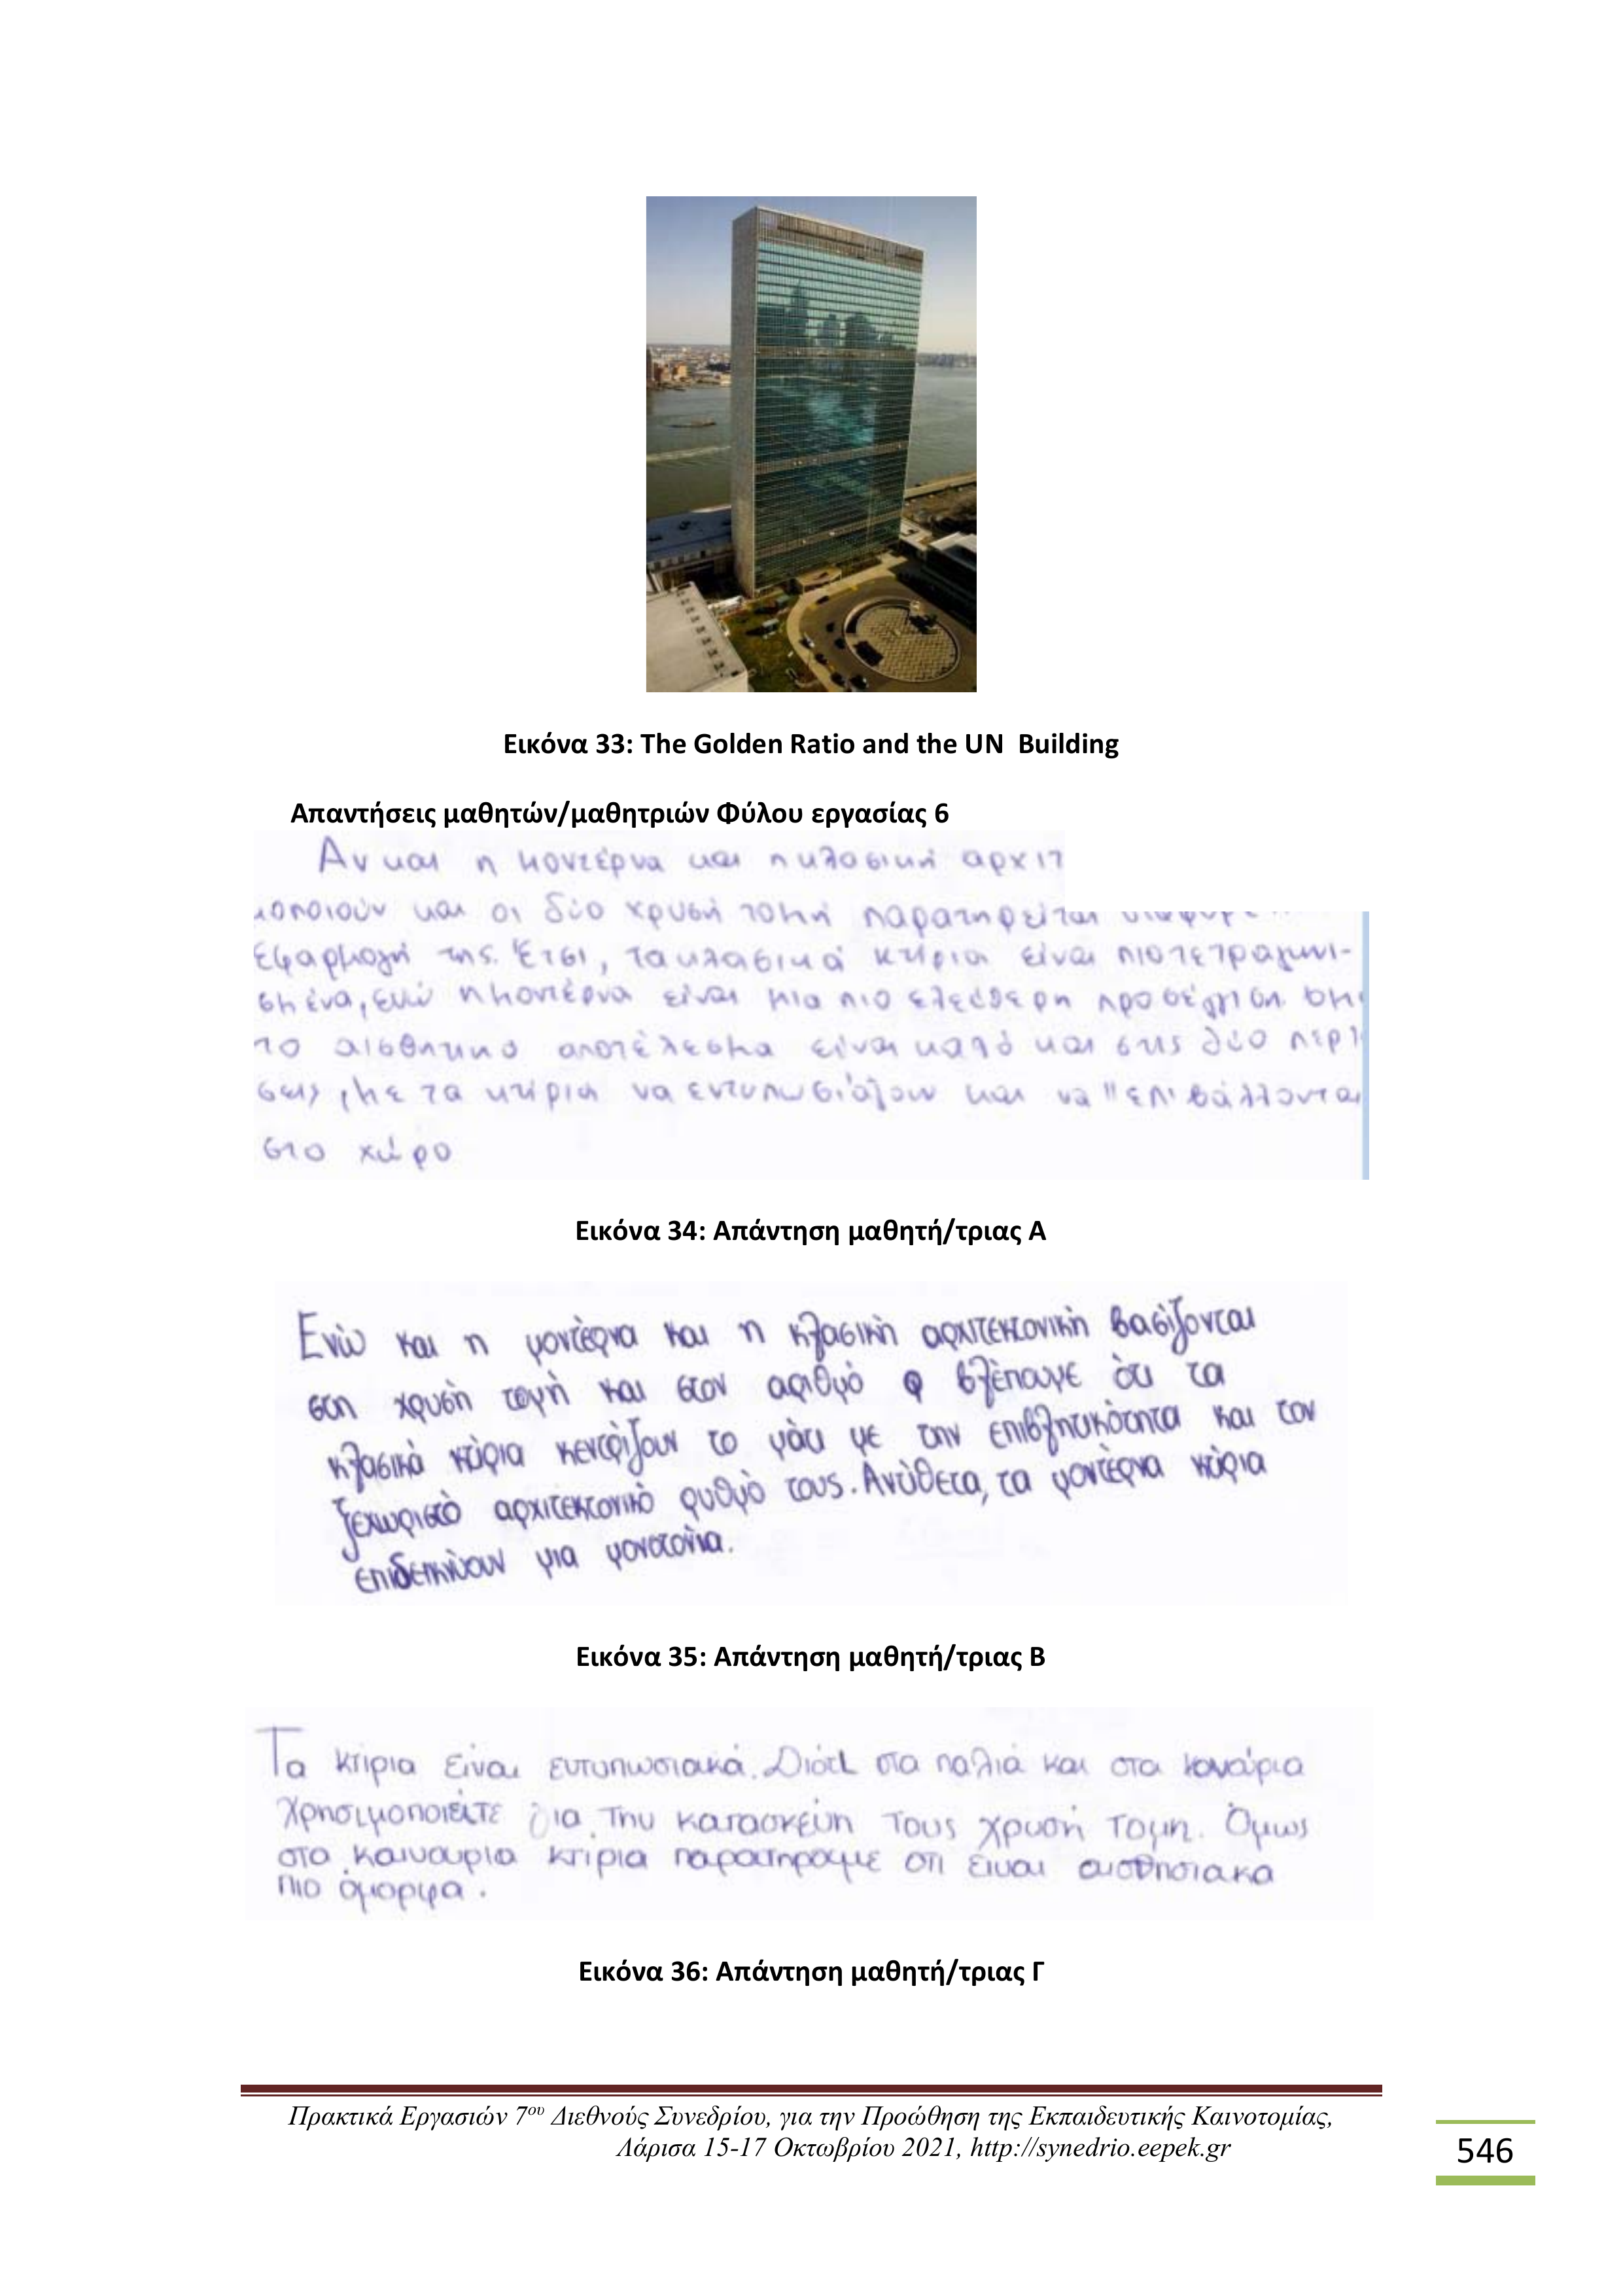 Εικόνα 33: The Golden Ratio and the UN Building
Απαντήσεις μαθητών/μαθητριών Φύλου εργασίας 6
Αν και η μοντέρνα και η κλασική αρχιτ
μοποιούν και οι δύο χρυσή τομή παρατηρείται
εφαρμογή της. Έτσι, τα κλασικά κτίρια είναι πιο τετραγωνι-
σμένα, ενώ η μοντέρνα είναι μια πιο ελεύθερη προσέγγιση.
το αισθητικό αποτέλεσμα είναι καλό και στις δύο περι
σεις, με τα κτίρια να εντυπωσιάζουν και να "επιβάλλονται
στο χώρο
Εικόνα 34: Απάντηση μαθητή/τριας Α
Ενώ και η μοντέρνα και η κλασική αρχιτεκτονική βασίζονται
στη χρυσή τομή και στον αριθμό φ βλέπουμε ότι τα
κλασικά κτίρια κεντρίζουν το μάτι με την επιβλητικότητα και τον
ξεχωριστό αρχιτεκτονικό ρυθμό τους. Αντίθετα, τα μοντέρνα κτίρια
επιδεικνύουν μια μονοτονία.
Εικόνα 35: Απάντηση μαθητή/τριας Β
Τα κτίρια είναι εντυπωσιακά. Διότι στα παλιά και στα καινούρια
χρησιμοποιείτε για την κατασκευή τους χρυσή τομη. Όμως
στα καινουρια κτιρια παρατηρουμε οτι ειναι αισθησιακα
πιο όμορφα.
Εικόνα 36: Απάντηση μαθητή/τριας Γ
Πρακτικά Εργασιών 7ου Διεθνούς Συνεδρίου, για την Προώθηση της Εκπαιδευτικής Καινοτομίας,
Λάρισα 15-17 Οκτωβρίου 2021, http://synedrio.eepek.gr
546